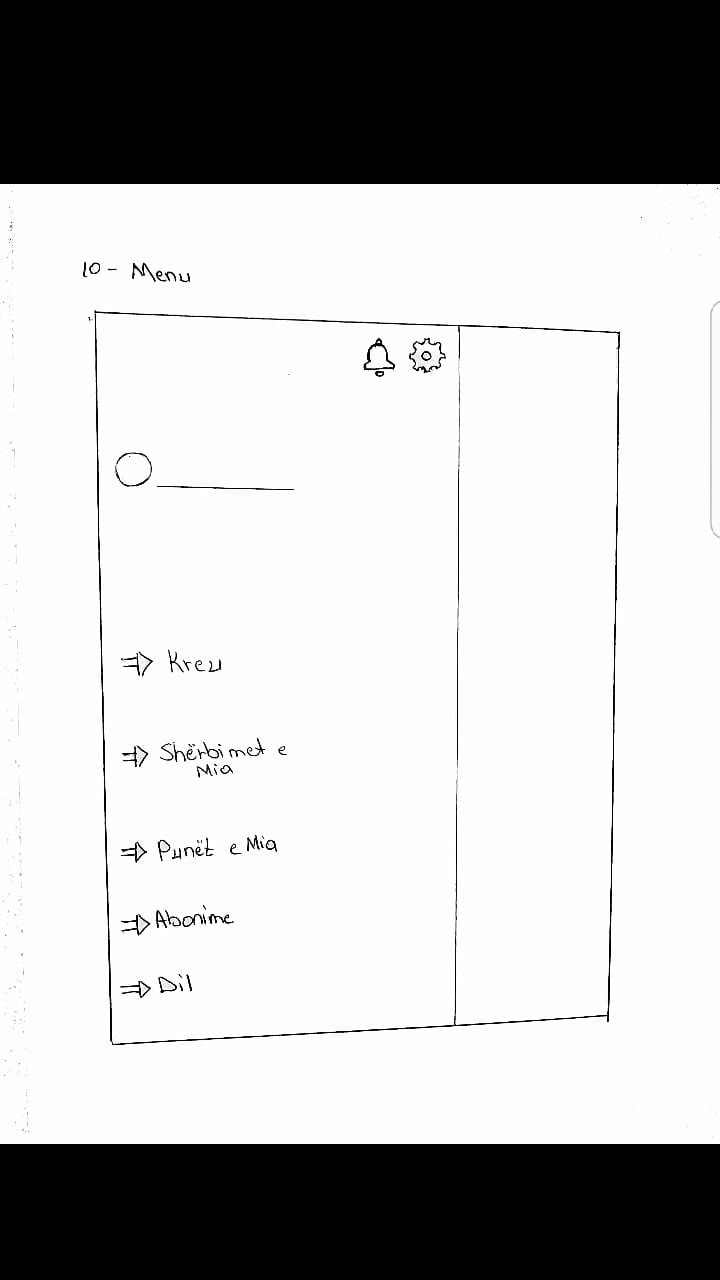 10 - Menu
⇒ Kreu
⇒ Shërbimet e
Mia
⇒ Punët e Mia
⇒ Abonime
⇒ Dil